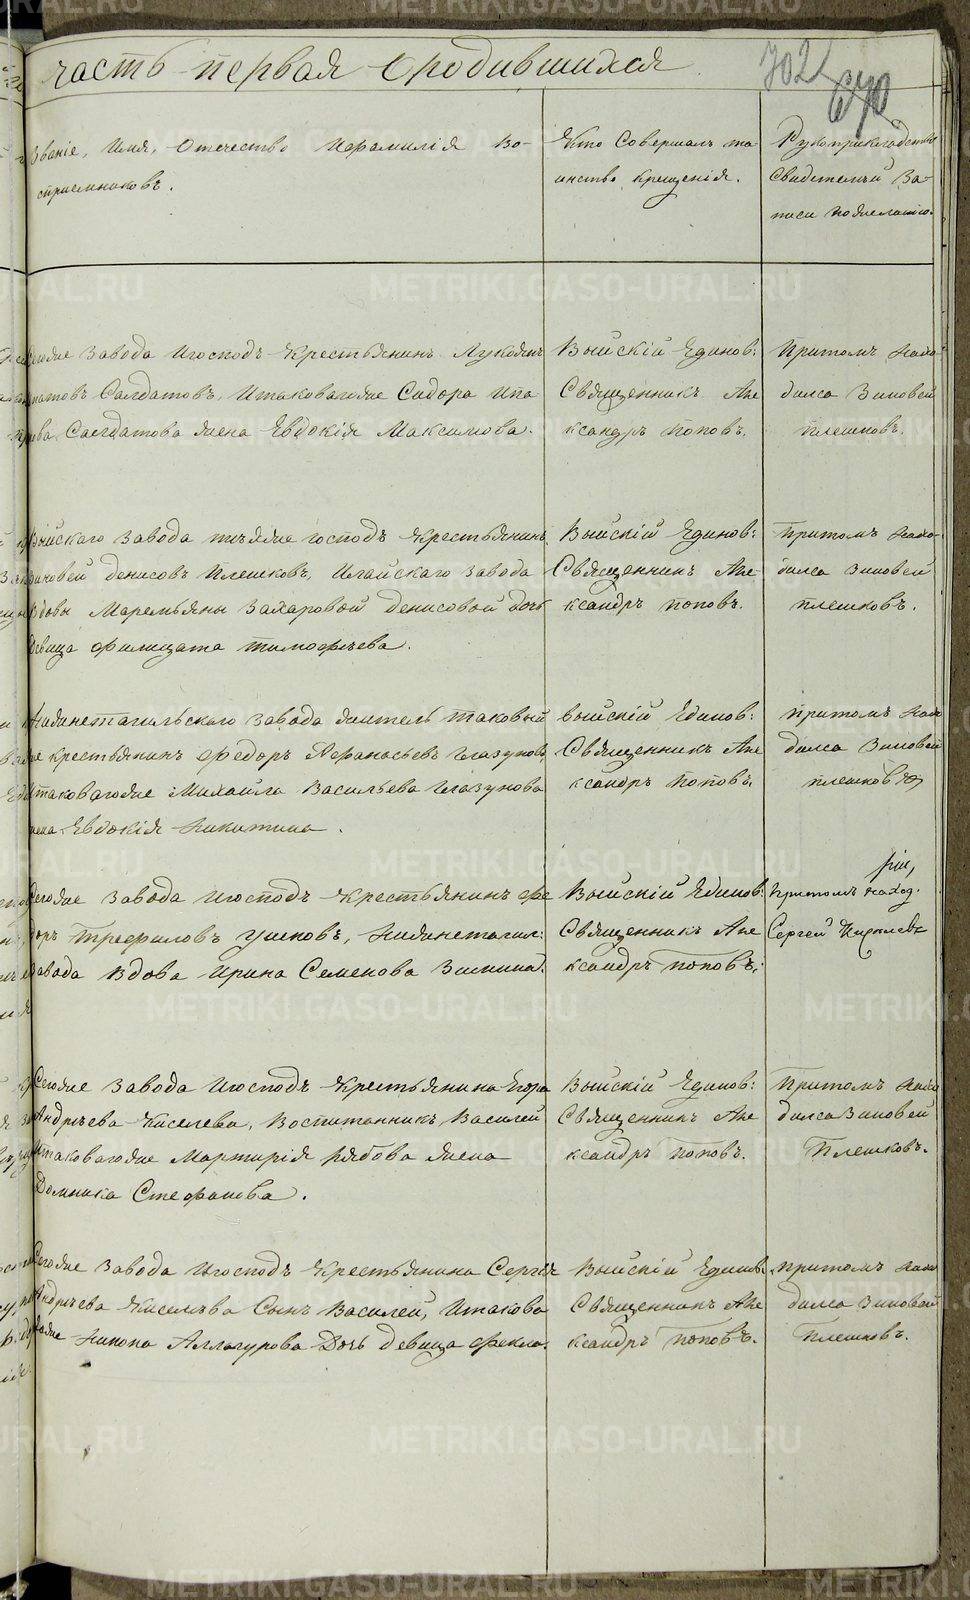 часть первая о родившихся
702
670
Званіе, Имя, Отечество Ифамилія Во-
спріемниковъ.
Кто Совершалъ та-
инство крещенія.
Рукоприкладство
Свидетелей За-
писи пожеланію.
Сегоже завода Игосподъ Крестьянинъ Лукоянъ
Солдатовъ, Итаковагоже Сидора Ипа
Солдатова жена Евдокія Максимова.
Выйскій Единов:
Священникъ Але
ксандръ поповъ.
Притомъ нахо-
дился Зиновей
плешковъ.
Выйскаго завода техже господъ Крестьянинъ
Зиновей денисовъ Плешковъ, завода
Вдовы Маремьяны Захаровой денисовой дочь
девица фелицата тимофеева.
Выйскій Единов:
Священникъ Але
ксандръ поповъ.
притомъ нахо-
дился Зиновей
плешковъ.
Нижнетагильскаго завода житель таковый
же крестьянинъ Федоръ Афанасьевъ Глазуновъ
Итаковагоже Михайла Васильева Глазунова
жена Евдокія Никитина.
выйскій Единов:
Священникъ Але
ксандръ поповъ.
притомъ нахо
дился Зиновей
плешковъ
Сегоже завода Игосподъ Крестьянинъ Фе
доръ Трефиловъ Ушковъ, Нижнетагил:
завода Вдова Ирина Семенова
Выйскій Единов:
Священникъ Але
ксандръ поповъ:
Притомъ наход.
Сергей
Сегоже завода Игосподъ Крестьянина Егора
Андреева Киселева, Воспитанникъ Василей
Итаковагоже Мартирія Рябова жена
Домника Стефанова.
Выйскій Единов:
Священникъ Але
ксандръ поповъ.
Притомъ нахо
дился Зиновей
Плешковъ.
Сегоже завода Игосподъ Крестьянина Сергея
Андреева Киселева Сынъ Василей, Итакова
гоже Никона Дочь девица Фекла.
Выйскій Единов:
Священникъ Але
ксандръ поповъ.
притомъ нахо
дился Зиновей
Плешковъ.
METRIKI.GASO-URAL.RU